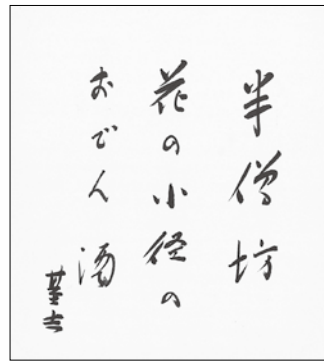 半僧坊
花の小径の
おでん酒